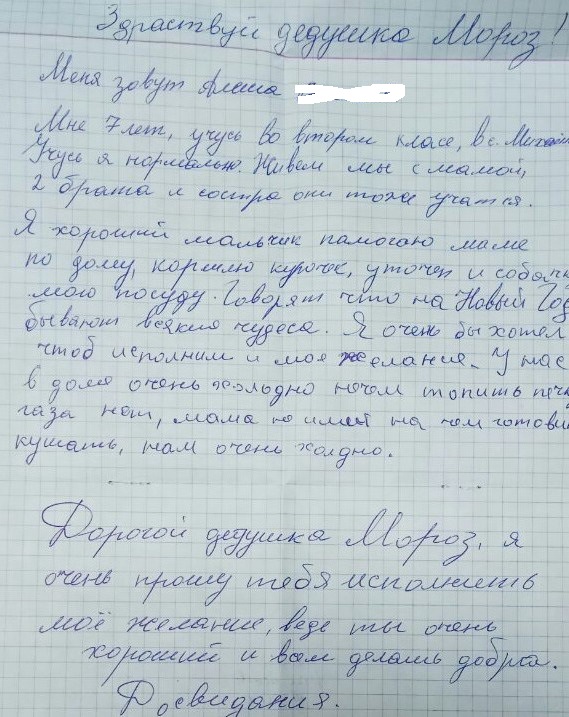 Здраствуй дедушка Мороз!
Меня зовут Алеша
Мне 7 лет, учусь во втором класе, в с.
Учусь я нормально. Живем мы с мамой,
2 брата и состра они тоже учатся.
Я хороший мальчик памогаю маме
по дому, кормлю курочек, уточек и
мою посуду. Говорят что на Новый Год
бывают всякие чудеса. Я очень бы хотел
чтоб исполним и мое желания. У нас
в доме очень холодно нечем топить
газа нет, мама не имеет на чем
кушать, нам очень холдно.
Дорогой дедушка Мороз, я
очень прошу тебя исполнить
моё желание, ведь ты очень
хороший и всем делаешь добра.
Досвидания.